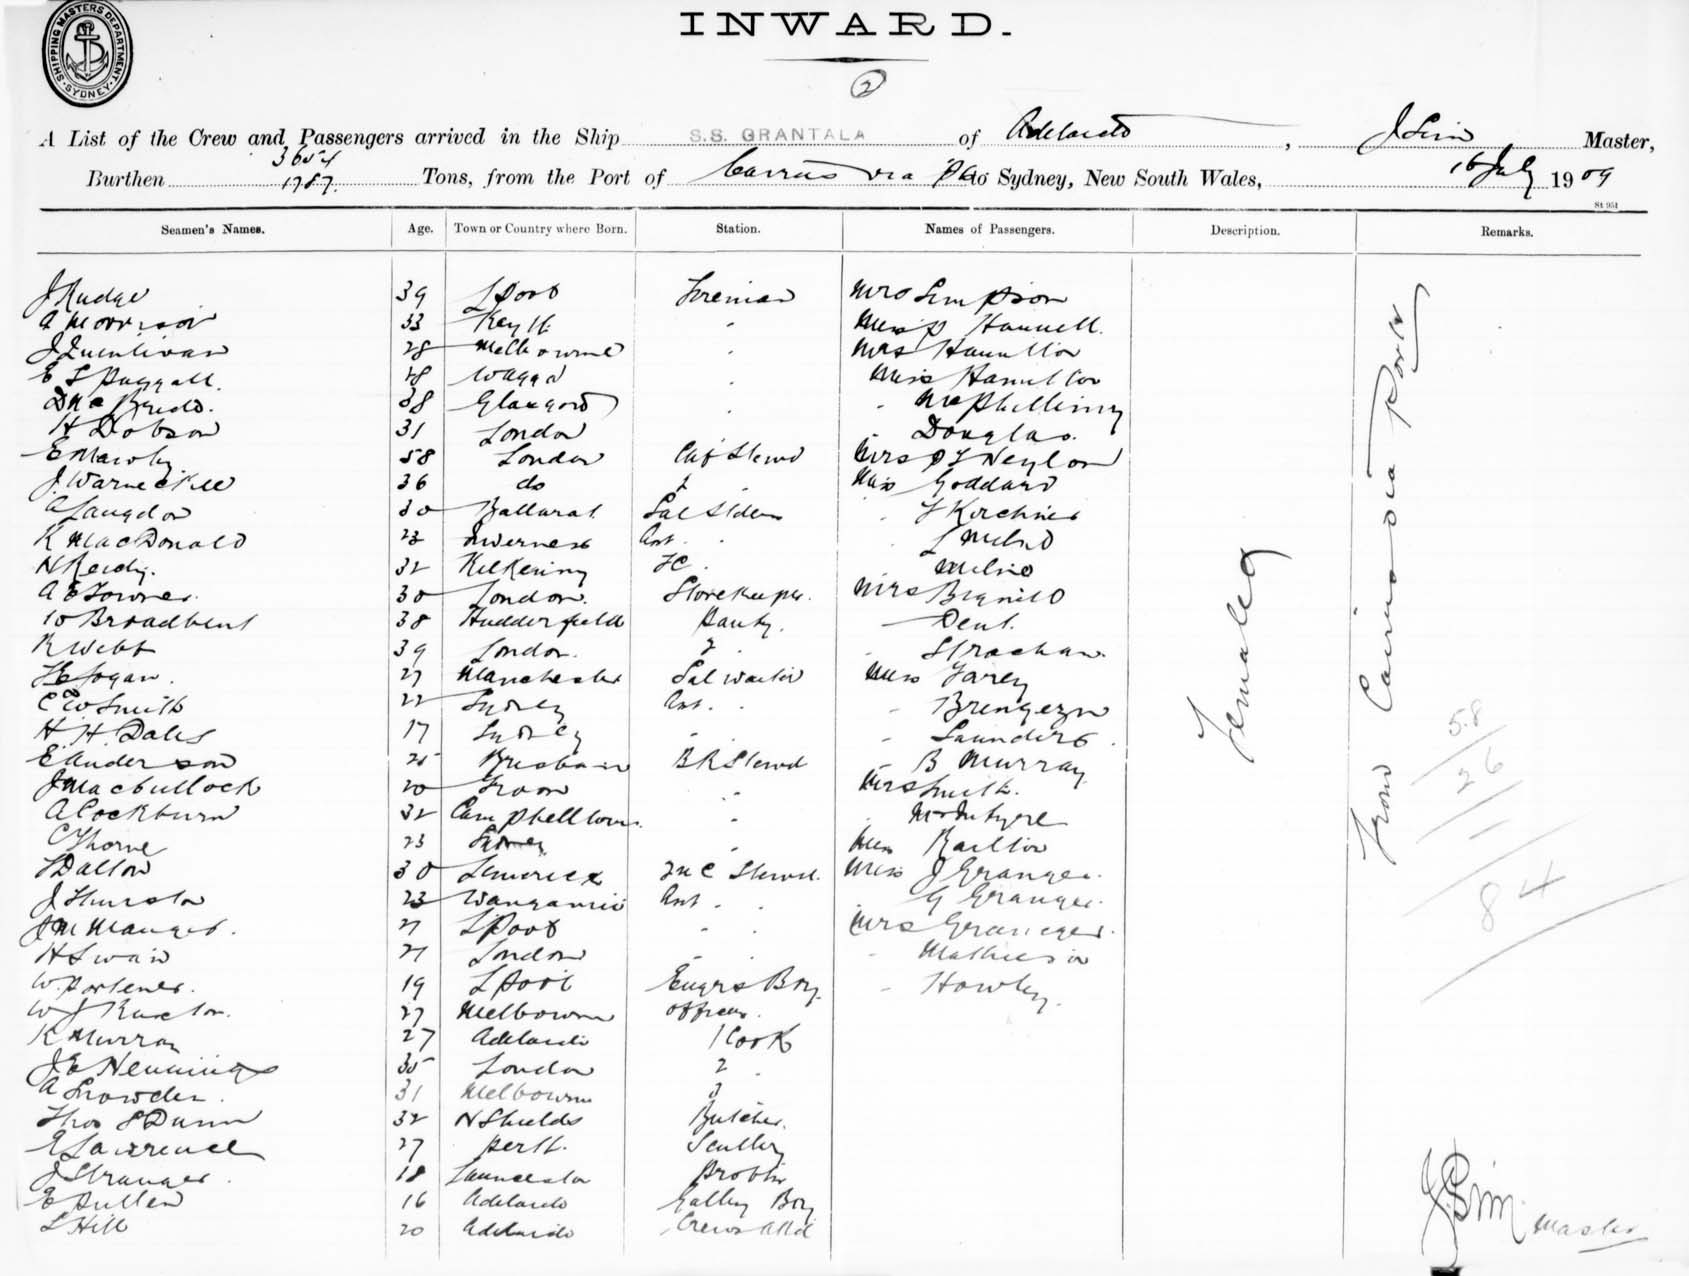 SHIPPING MASTERS DEPARTMENT SYDNEY
INWARD.
2
A List of the Crew and Passengers arrived in the Ship S.S. GRANTALA of Adelaide, J Sim Master,
3654
Burthen 1787. Tons, from the Port of Cairns via Ports to Sydney, New South Wales, 16 July 1909
St 951
Seamen's Names. Age. Town or Country where Born. Station. Names of Passengers. Description. Remarks.
J Rudge 39 L'Pool Fireman Mrs Simpson
A Morrison 33 " Miss P Hannell.
J Quinlivan 28 Melbourne " Mrs Hamilton
E L 28 Wagga " Miss Hamilton
D McBride. 38 Glasgow " " McPhillimy
H Dobson 31 London Douglas.
E Mawby 58 London Chf Stewd Mrs Neylon
J. Warneckee 36 do 2 " Miss Goddard
A Langdon 30 Ballarat Sal Stdess " F Kirchner
K MacDonald 23 Inverness Asst " " L Milne
N Reidy. 32 Kilkenny FC. Milne
A E Towner 30 London. Storekeeper. Mrs Bignell
Broadbent 38 Hudderfield Pantry. — Dent.
R Webb 39 London. 2 " Strachan.
Logan. 27 Manchester Sal waiter Miss Farey
E W Smith 22 Sydney Asst. " "
H. H. Dales 17 Sydney " " " Saunders.
E Anderson 25 Brisbane BR Stewd " B Murray
J MacCullock 20 " Mrs Smith.
A Cockburn 32 Campbelltown. " McIntyre
C Thorne 23 Sydney " Miss Railton
T Dalton 30 Limerick 2nd C Stewd. Miss J Granger.
J Thurston 23 Wanganui Asst " " G Granger.
J M Manger. 21 L'Pool " " Mrs Granger.
H Swain 21 London " " " Mathieson
W. Portener. 19 L'Pool Engrs Boy. " Howley.
W J 27 Melbourne Officers "
K Murray 27 Adelaide 1 Cook
J E Hennings 35 London 2 "
A Snowden. 31 Melbourne 3
Thos S Dunn 32 N Shields Butcher.
E Lawrence 27 Perth. Scullery
J Stranger. 18 Launceston
E Pullen 16 Adelaide Galley Boy
L Hill 20 Adelaide Crews Attd
Females
From Cairns via Ports
58
26
84
J Sim Master